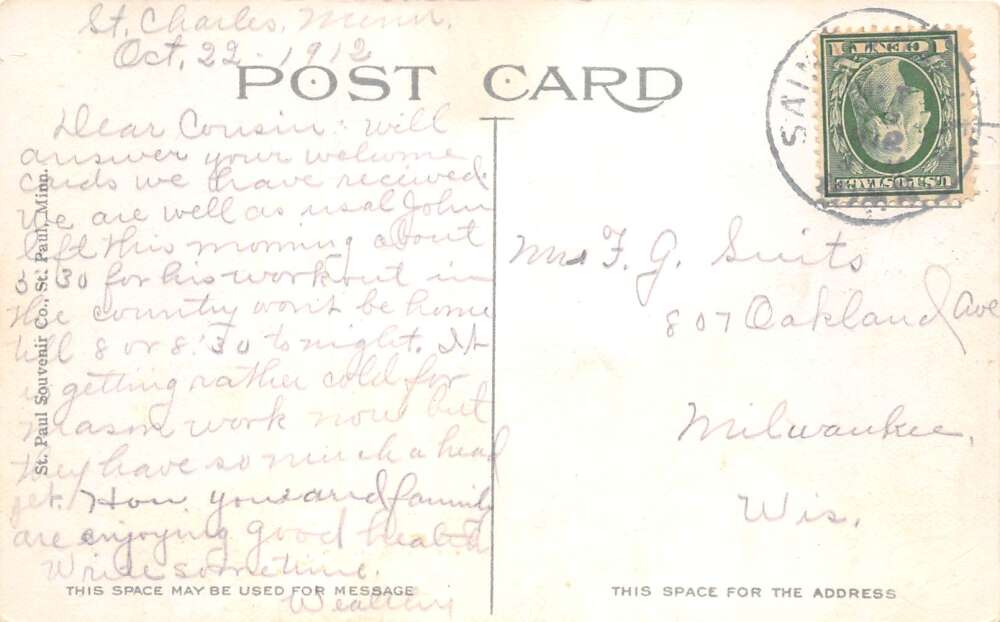 St. Charles, Minn.
Oct, 22 - 1912
POST CARD
Dear Cousin: will
answer your welcome
cards we have received.
we are well as usal John
left this morning about
30 for his work out in
the country wont be home
till 8 or 8:30 to night. It
is getting rather cold for
mason work now but
they have so much a head
yet. How you and family
are enjoying good health
Write sometime.
THIS SPACE MAY BE USED FOR MESSAGE
St. Paul Souvenir Co., St. Paul, Minn.
SAIN
1 CENT 1
U.S. POSTAGE
F. G. Suits
807 Oakland Ave
Milwaukee,
Wis.
THIS SPACE FOR THE ADDRESS